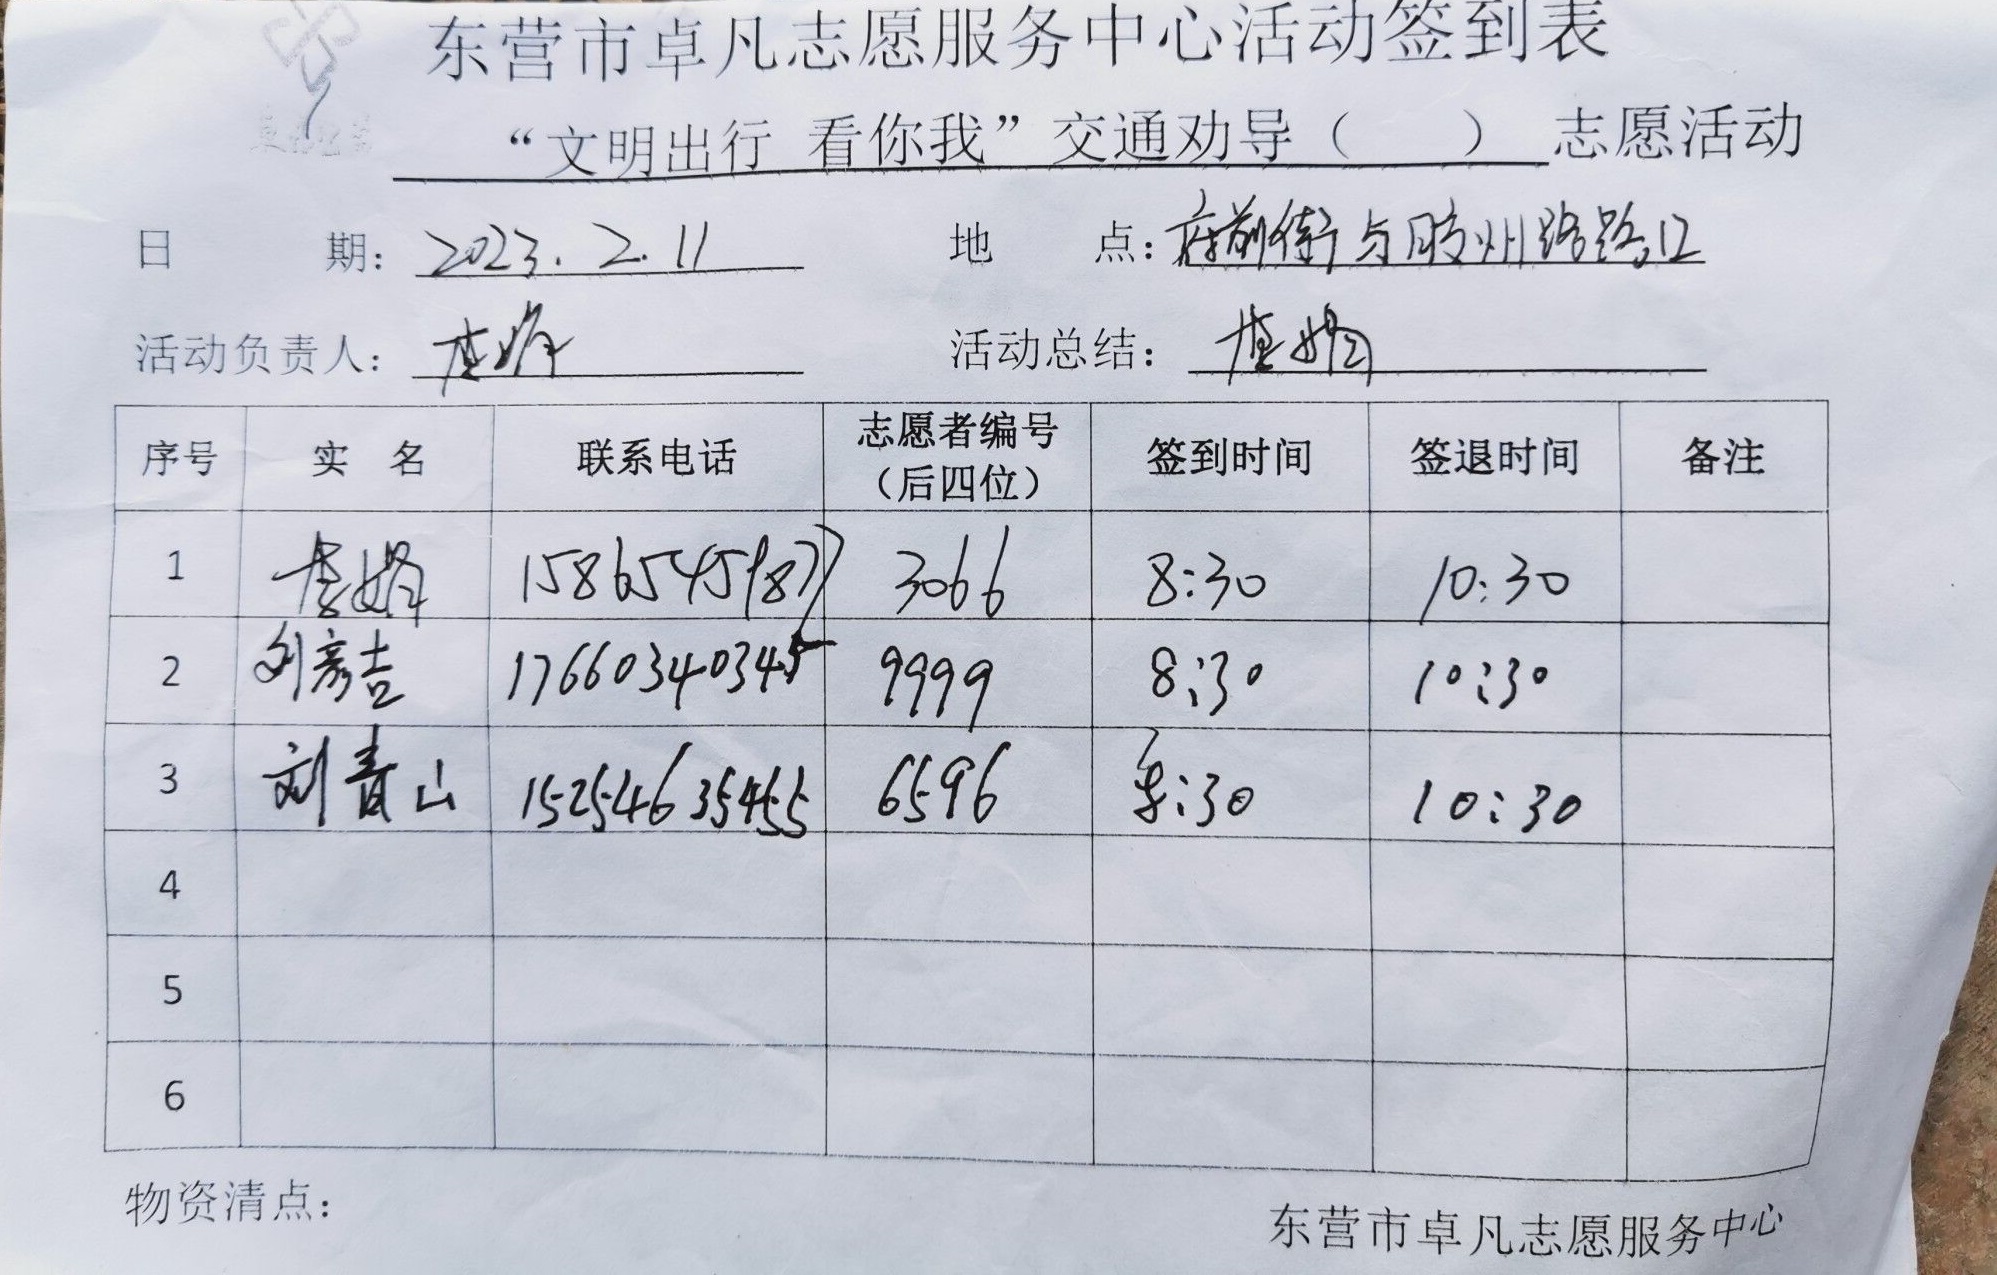 东营市卓凡志愿服务中心活动签到表
“文明出行 看你我”交通劝导（ ）志愿活动
日 期：2023.2.11 地 点：府前街与胶州路路口
活动负责人： 活动总结：
序号 实 名 联系电话 志愿者编号（后四位） 签到时间 签退时间 备注
1 3066 8:30 10:30
2 刘彦吉 17660340345 9999 8:30 10:30
3 刘青山 15254635455 6596 8:30 10:30
4
5
6
物资清点：
东营市卓凡志愿服务中心